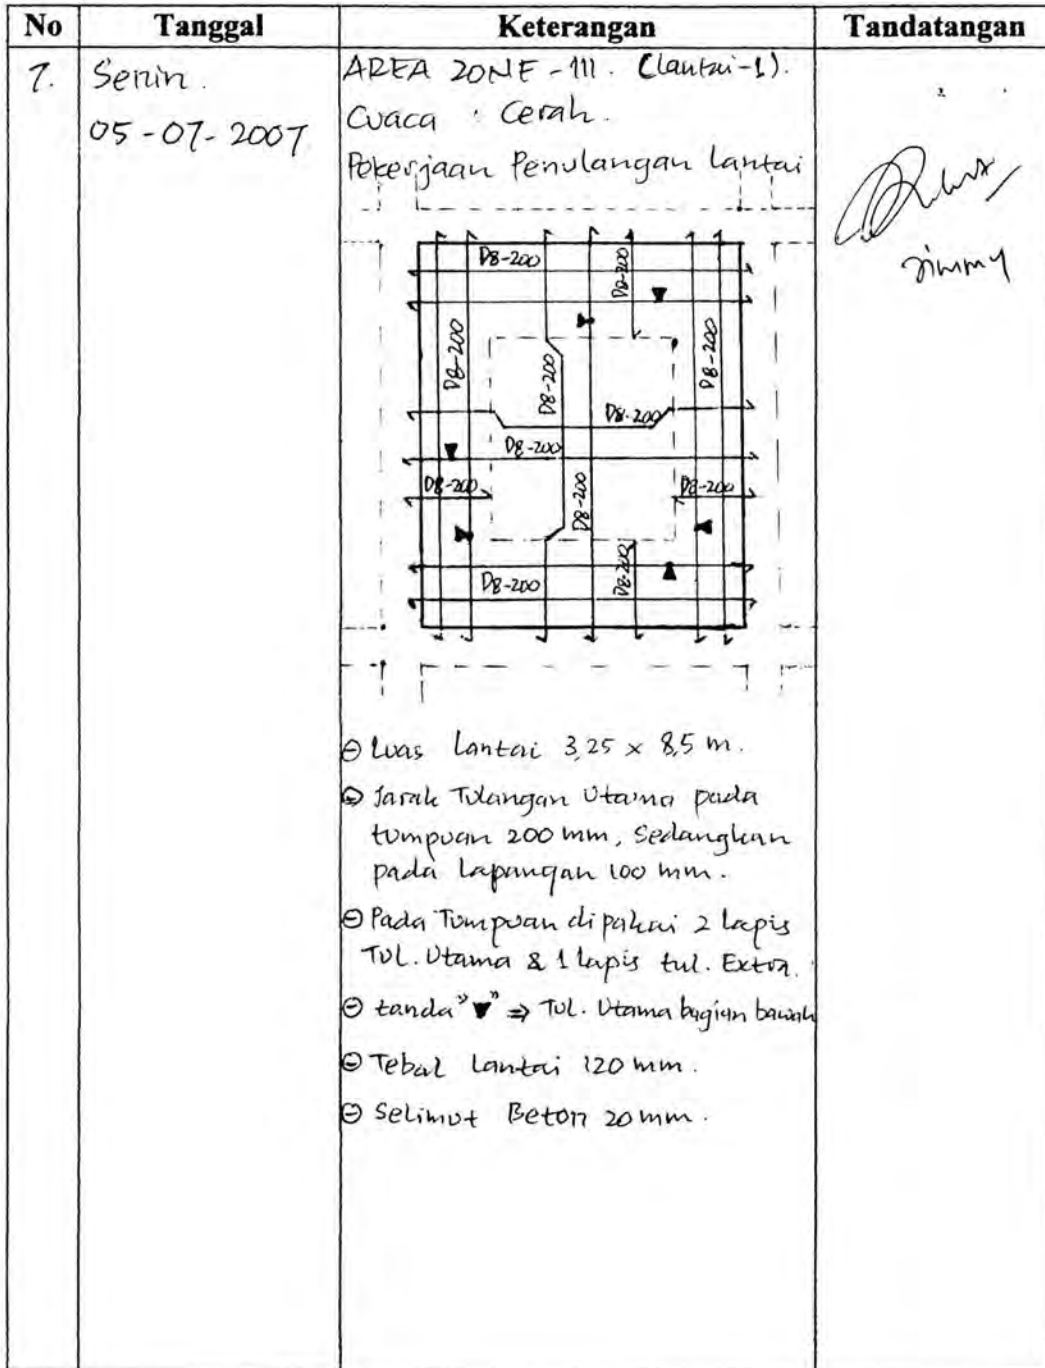 No Tanggal Keterangan Tandatangan
7. Senin. AREA ZONE - III. (Lantai-1).
05-07-2007 Cuaca : Cerah.
Pekerjaan Penulangan Lantai
Jimmy
D8-200
D8-200
D8-200
D8-200
D8-200
D8-200
D8-200
D8-200
D8-200
D8-200
D8-200
D8-200
⊖ Luas Lantai 3,25 x 8,5 m.
⊖ Jarak Tulangan Utama pada
tumpuan 200 mm, Sedangkan
pada Lapangan 100 mm.
⊖ Pada Tumpuan dipakai 2 lapis
Tul. Utama & 1 lapis tul. Extra.
⊖ tanda "▼" ⇒ Tul. Utama bagian bawah
⊖ Tebal Lantai 120 mm.
⊖ Selimut Beton 20 mm.